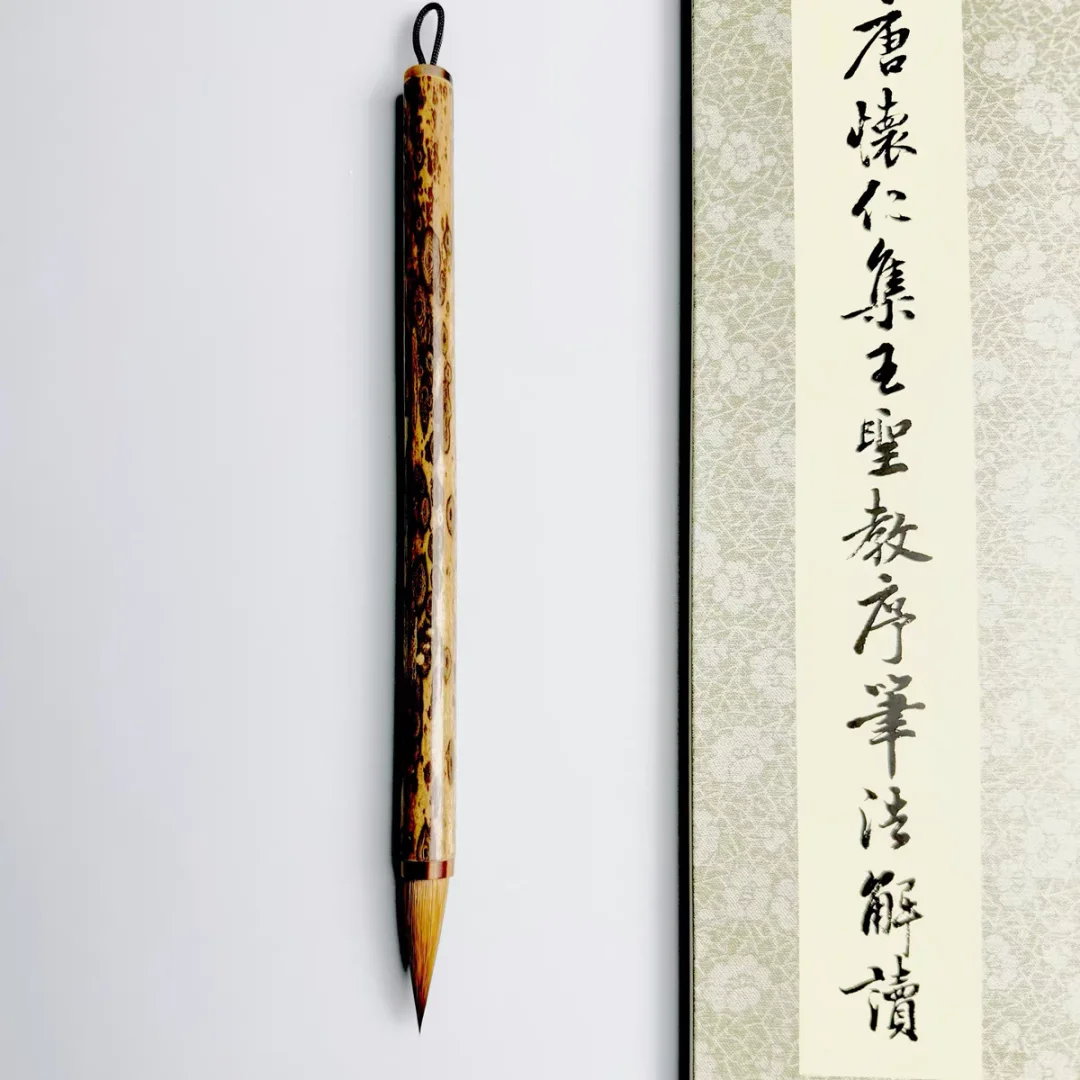 唐懷仁集王聖教序筆法解讀